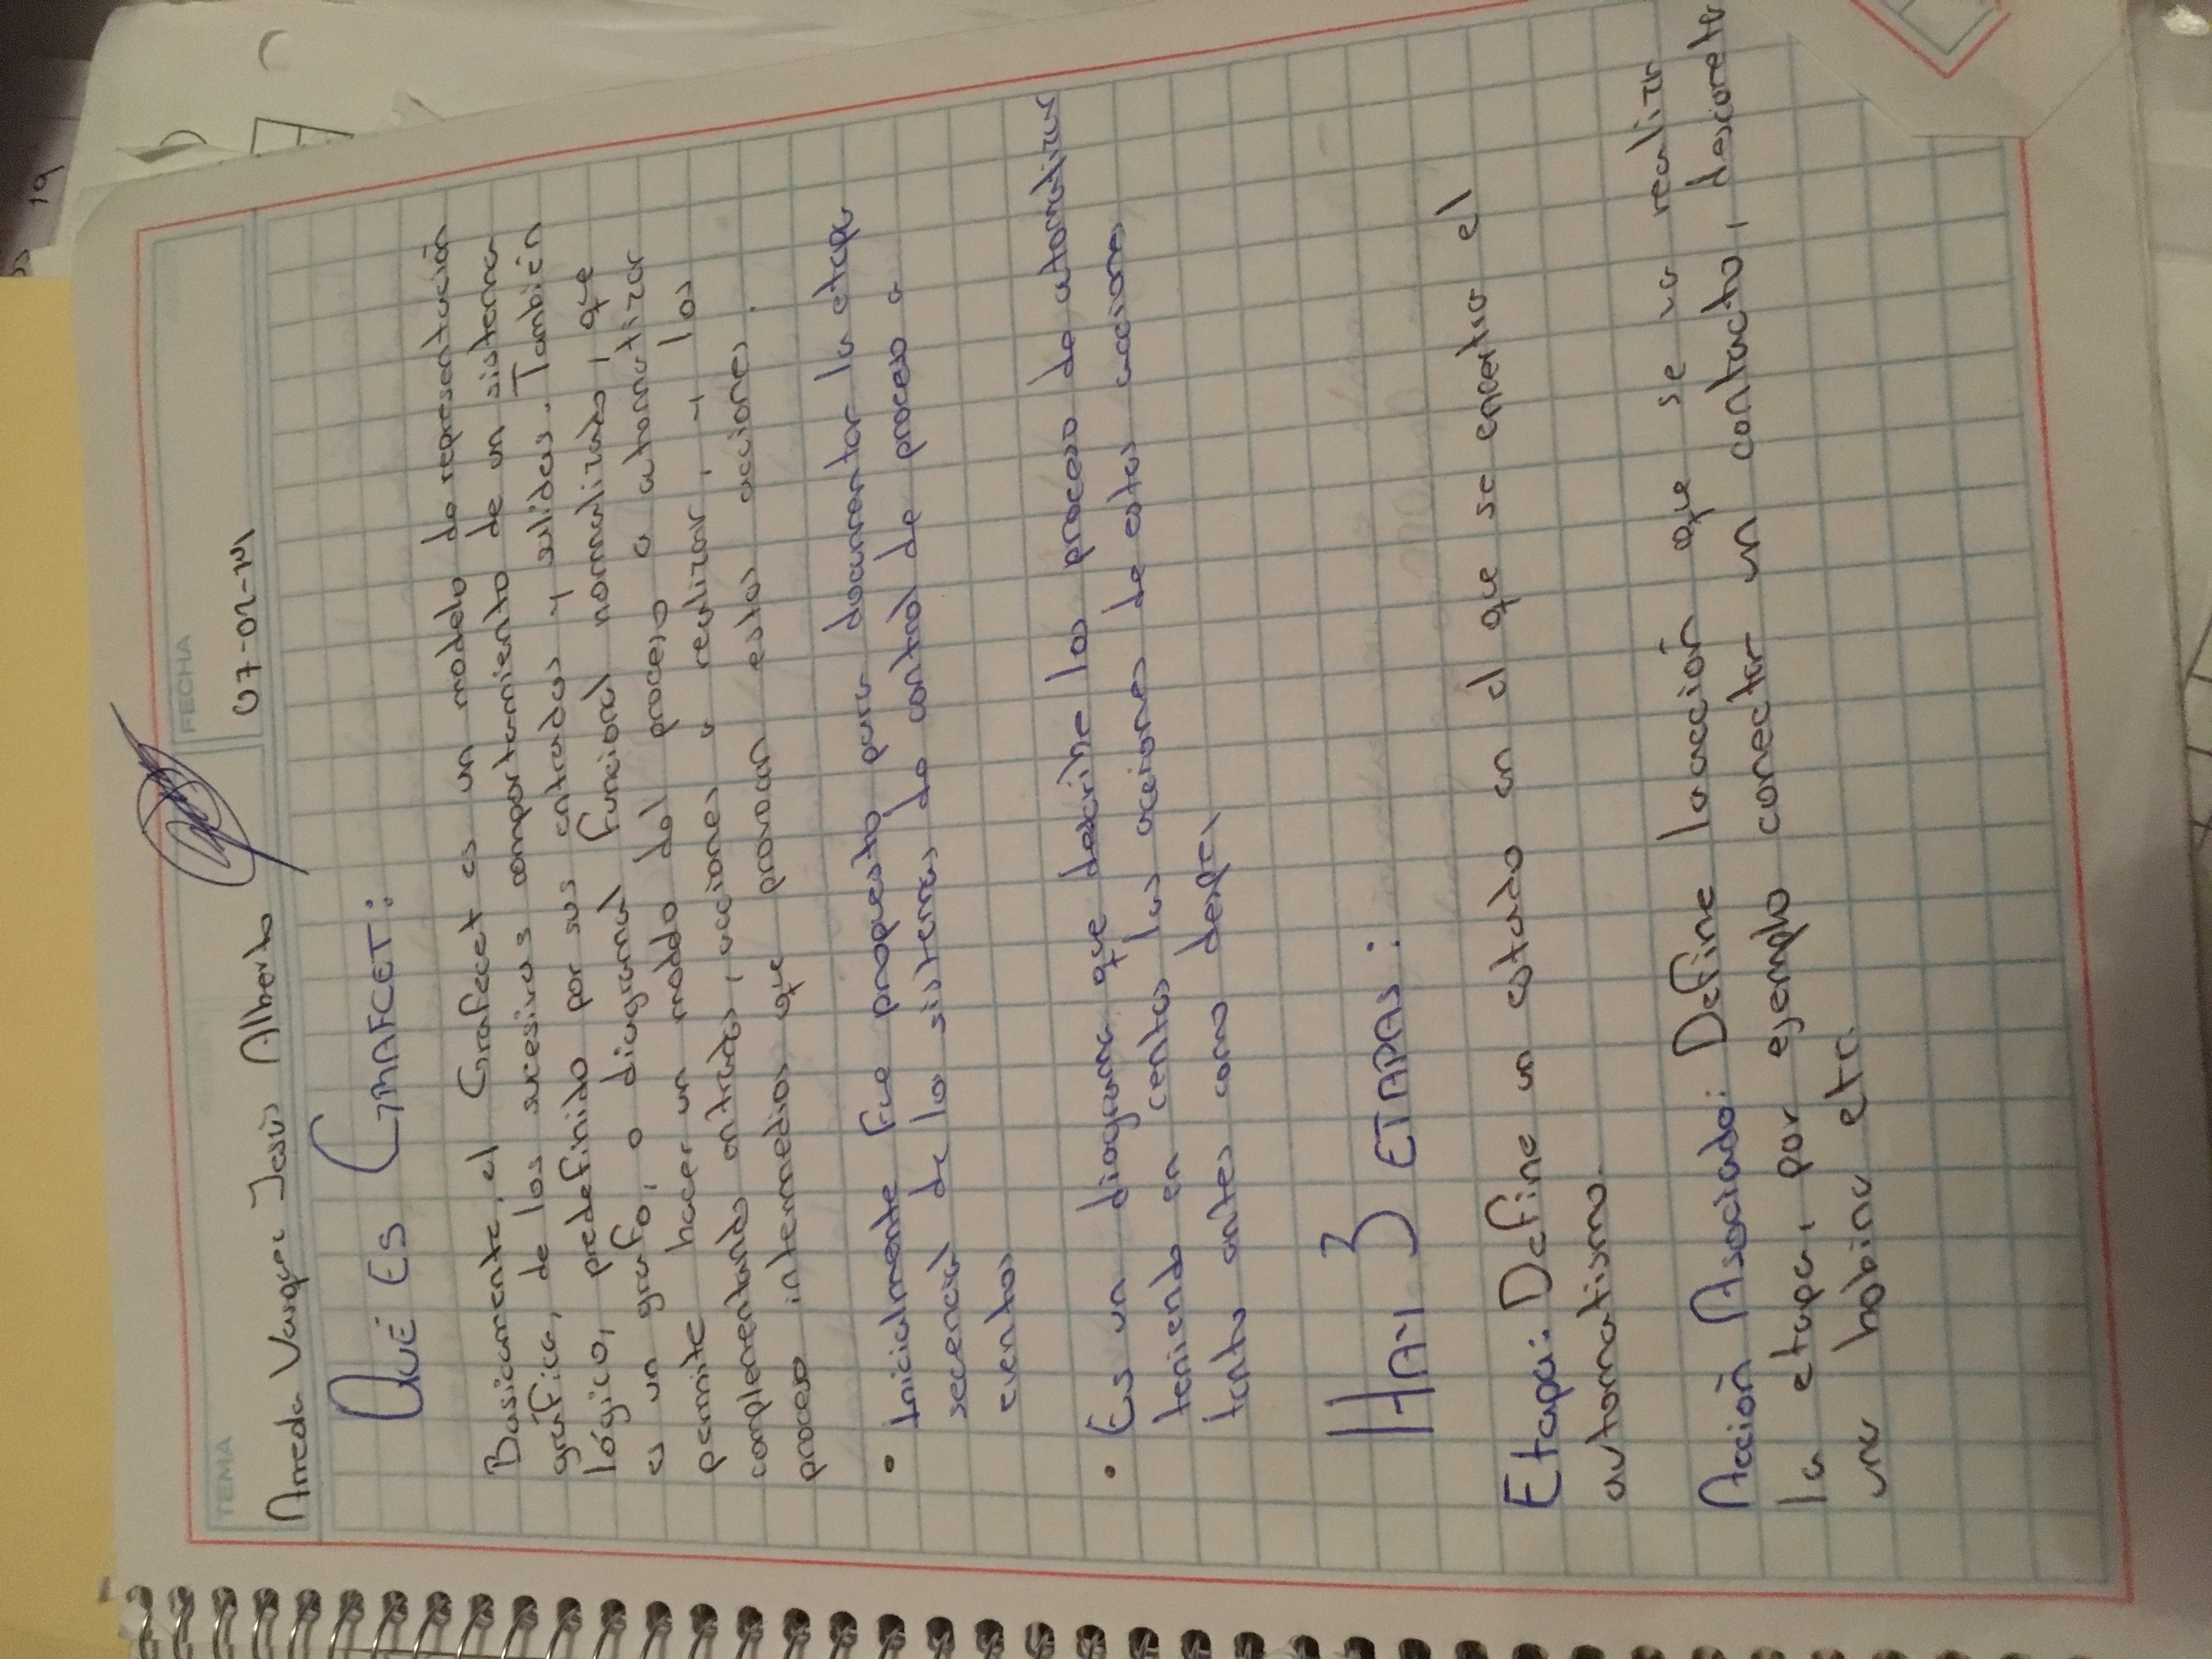 19
TEMA
FECHA
Arreda Vasquez Jesús Alberto
QUÉ ES GRAFCET:
Basicamente, el Grafecet es un modelo de representación
gráfica, de los sucesivos comportamiento de un sistema
lógico, predefinido por sus entradas y salidas. También
es un grafo, o diagramal funcional normalizado, que
permite hacer un modelo del proceso a automatizar
complementando entradas, acciones a realizar, y los
proceso intermedios que provocan estas acciones.
• Inicialmente fue propuesto para documentar la etapa
secencial de los sistemas de control de proceso a
eventos
• Es un diagrama que describe los proceso de atomatizar
teniendo en centas las acciones de estas acciones
tanto antes como
HAY 3 ETAPAS:
Etapa: Define un estado en el que se encentra el
automatismo.
Acción Asociado: Define la acción que se va realizr
la etapa, por ejemplo conectar un contacto, desconeta
una bobina etc.